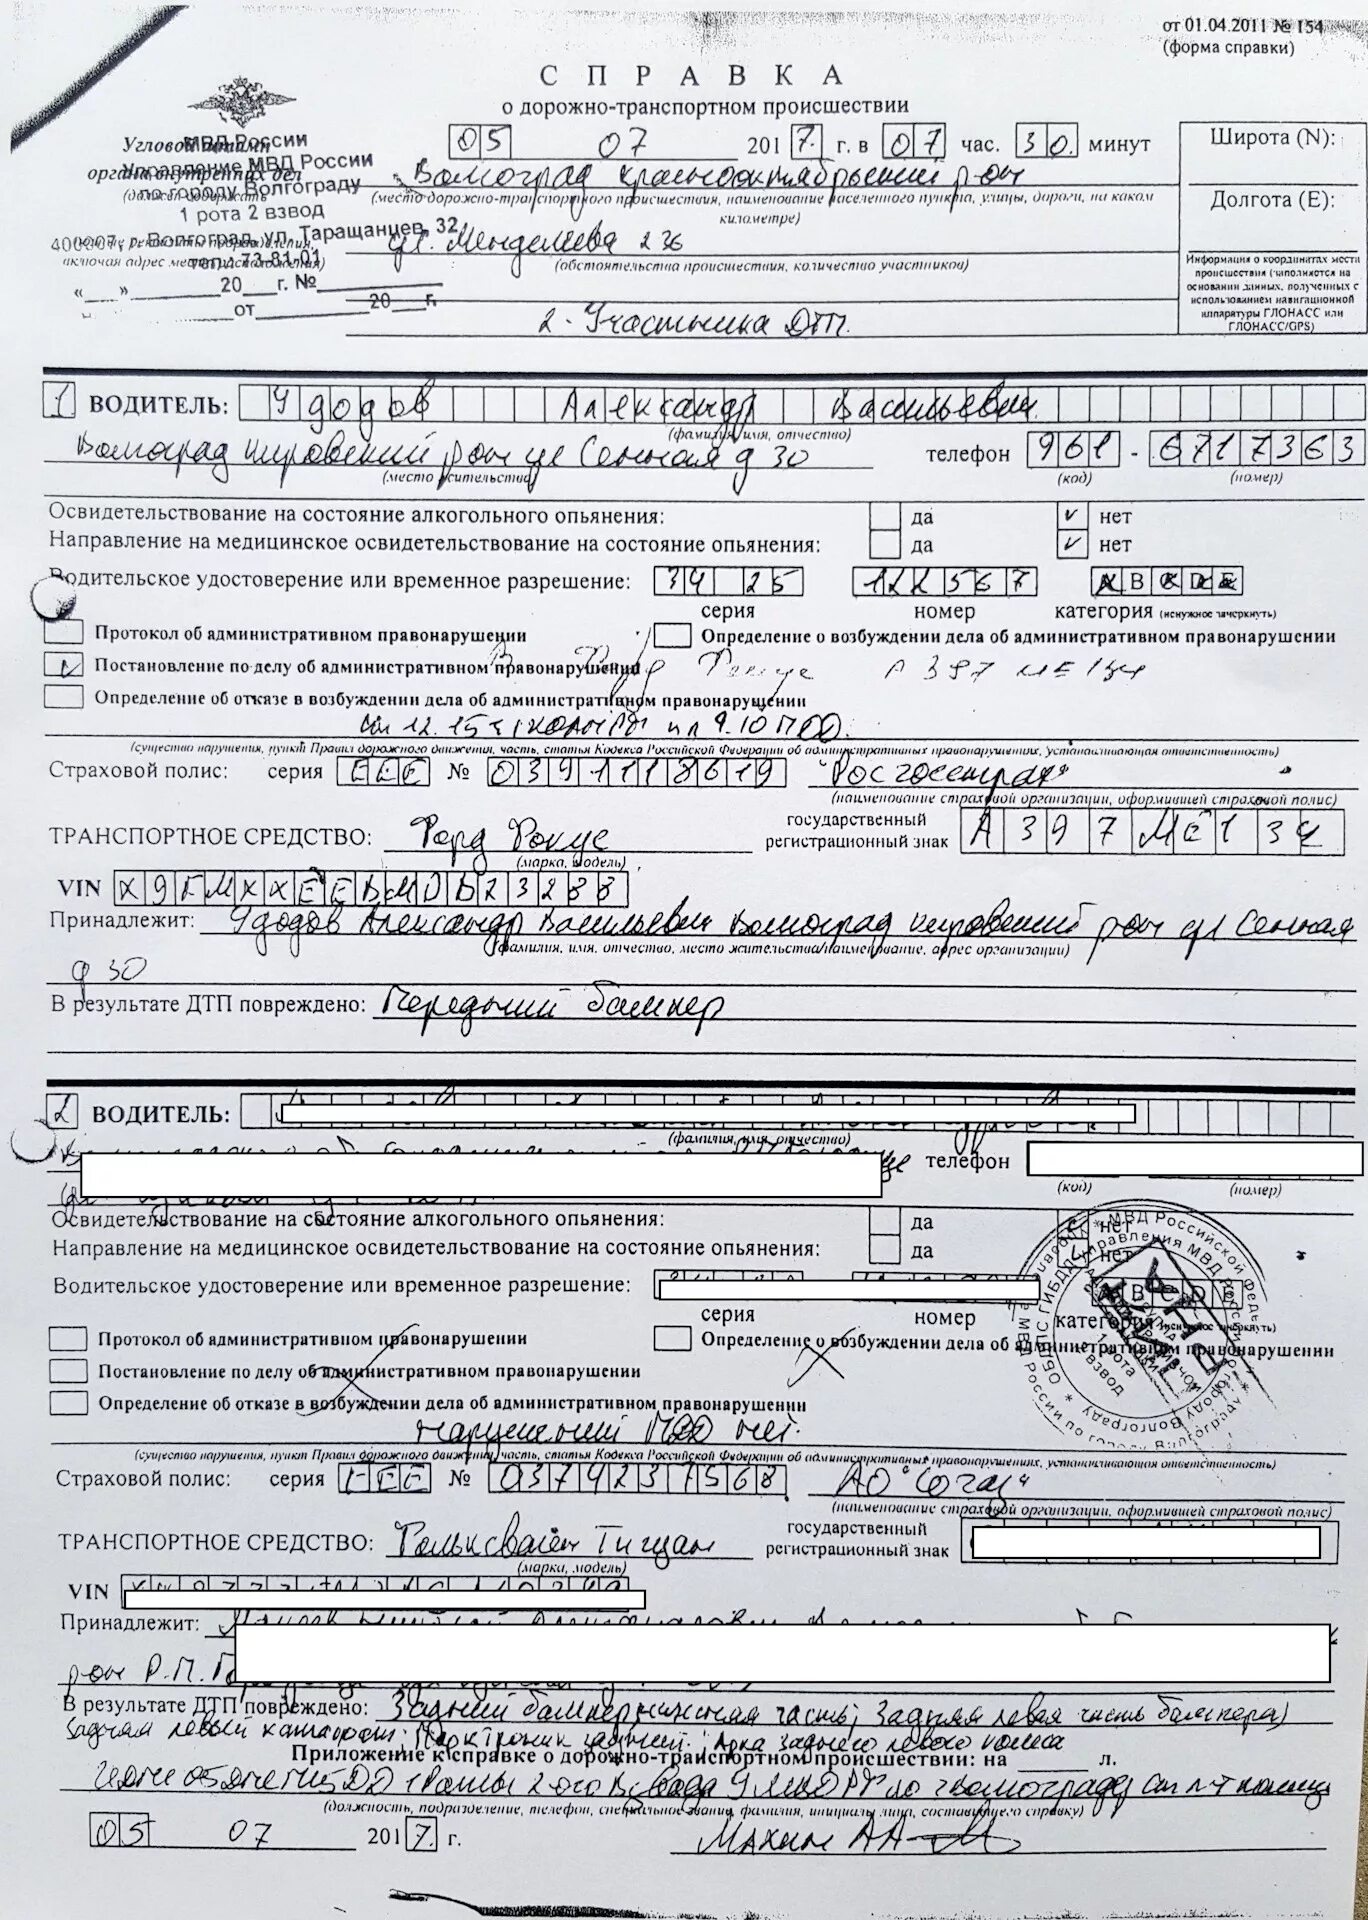 от 01.04.2011 № 154
(форма справки)
СПРАВКА
о дорожно-транспортном происшествии
МВД России
Управление МВД России
по городу Волгограду
1 рота 2 взвод
400007, г. Волгоград, ул. Таращанцев, 32
тел.: 73-81-01
включая адрес места расположения)
«___» ________ 20___г. №
от ________ 20___г.
05 07 2017. г. в 07 час. 30. минут
Волгоград Краснооктябрьский р-он
(место дорожно-транспортного происшествия, наименование населенного пункта, улицы, дороги, на каком километре)
ул. Менделеева 236
(обстоятельства происшествия, количество участников)
2 - Участника ДТП.
Широта (N):
Долгота (E):
Информация о координатах места происшествия (заполняются на основании данных, полученных с использованием навигационной аппаратуры ГЛОНАСС или ГЛОНАСС/GPS)
1 ВОДИТЕЛЬ: Удодов Александр Васильевич
(фамилия, имя, отчество)
Волгоград Кировский р-он ул Сенная д 30
(место жительства)
телефон 961 - 6717363
(код) (номер)
Освидетельствование на состояние алкогольного опьянения: да нет
Направление на медицинское освидетельствование на состояние опьянения: да нет
Водительское удостоверение или временное разрешение: 34 25 122567 A B C D E
серия номер категория (ненужное зачеркнуть)
Протокол об административном правонарушении
Определение о возбуждении дела об административном правонарушении
Постановление по делу об административном правонарушении
Форд Фокус А 397 МЕ 134
Определение об отказе в возбуждении дела об административном правонарушении
п 9.10 ПДД.
(существо нарушения, пункт Правил дорожного движения, часть, статья Кодекса Российской Федерации об административных правонарушениях, устанавливающая ответственность)
Страховой полис: серия ЕЕЕ № 0391118619 "Росгосстрах"
(наименование страховой организации, оформившей страховой полис)
ТРАНСПОРТНОЕ СРЕДСТВО: Форд Фокус
(марка, модель)
государственный регистрационный знак А 397 МЕ 134
VIN X9FMXXEEBMDB23288
Принадлежит: Удодов Александр Васильевич Волгоград Кировский р-он ул Сенная
(фамилия, имя, отчество, место жительства/наименование, адрес организации)
д 30
В результате ДТП повреждено: Передний бампер
2 ВОДИТЕЛЬ:
(фамилия, имя, отчество)
телефон
(код) (номер)
Освидетельствование на состояние алкогольного опьянения: да нет
Направление на медицинское освидетельствование на состояние опьянения: да нет
Водительское удостоверение или временное разрешение: A B C D E
серия номер категория (ненужное зачеркнуть)
Протокол об административном правонарушении
Определение о возбуждении дела об административном правонарушении
Постановление по делу об административном правонарушении
Определение об отказе в возбуждении дела об административном правонарушении
Нарушений ПДД нет.
(существо нарушения, пункт Правил дорожного движения, часть, статья Кодекса Российской Федерации об административных правонарушениях, устанавливающая ответственность)
Страховой полис: серия ЕЕЕ № 0374237568 АО "Согаз"
(наименование страховой организации, оформившей страховой полис)
ТРАНСПОРТНОЕ СРЕДСТВО: Фольксваген Тигуан
(марка, модель)
государственный регистрационный знак
VIN
Принадлежит:
р-он Р.П.
В результате ДТП повреждено: Задний бампер нижная часть; Задняя левая часть бампера)
Приложение к справке о дорожно-транспортном происшествии: на ____ л.
(должность, подразделение, телефон, специальное звание, фамилия, инициалы лица, составившего справку)
05 07 2017. г.
Махин АА